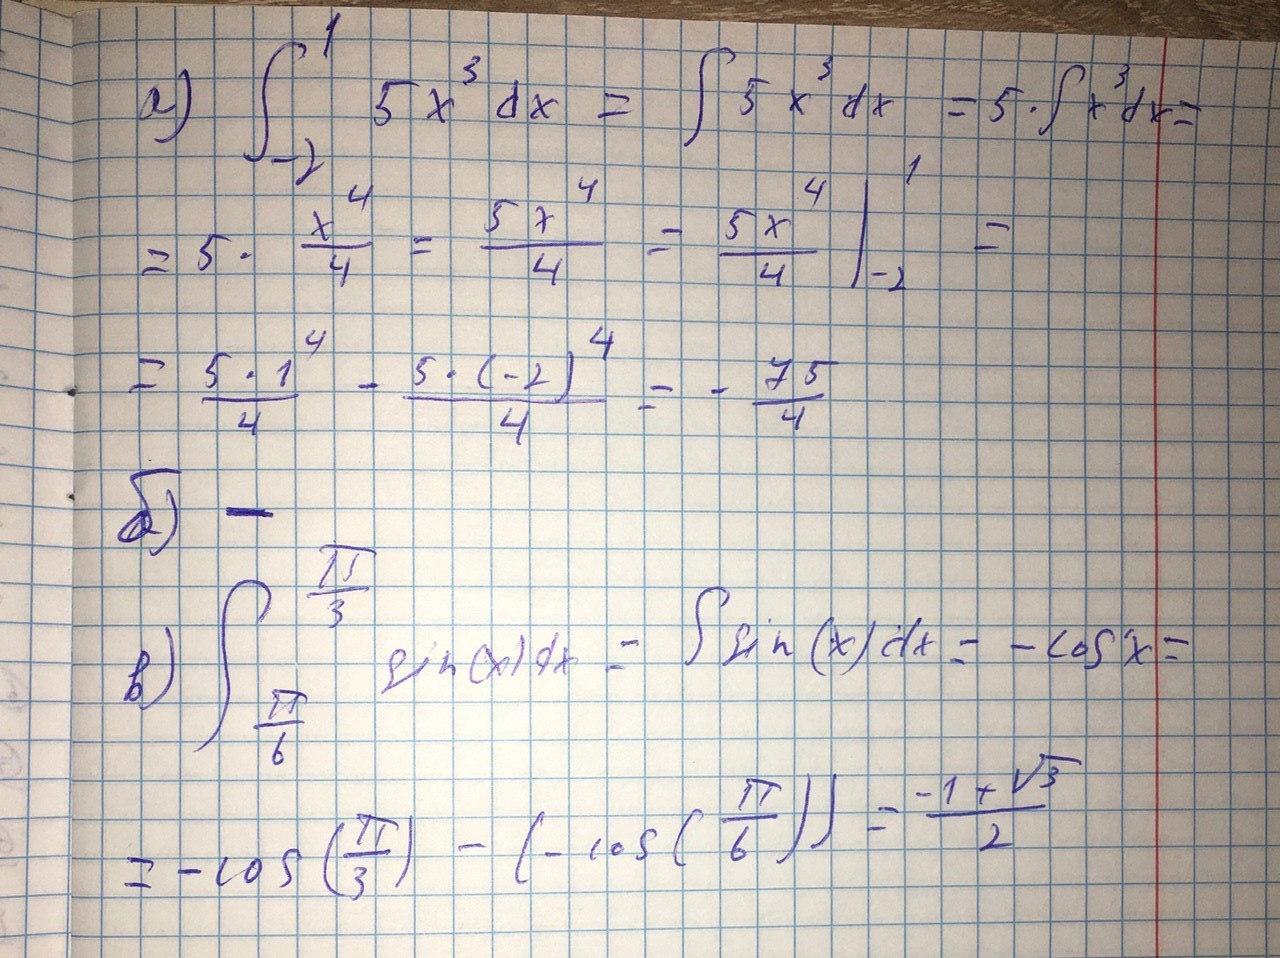 а) ∫₋₂¹ 5x³ dx = ∫ 5x³ dx = 5 · ∫ x³ dx =
= 5 · x⁴/4 = 5x⁴/4 = 5x⁴/4 |₋₂¹ =
= 5 · 1⁴/4 - 5 · (-2)⁴/4 = - 75/4
б) —
в) ∫_{π/6}^{π/3} sin(x) dx = ∫ sin(x) dx = -cos x =
= -cos(π/3) - (-cos(π/6)) = (-1 + √3)/2